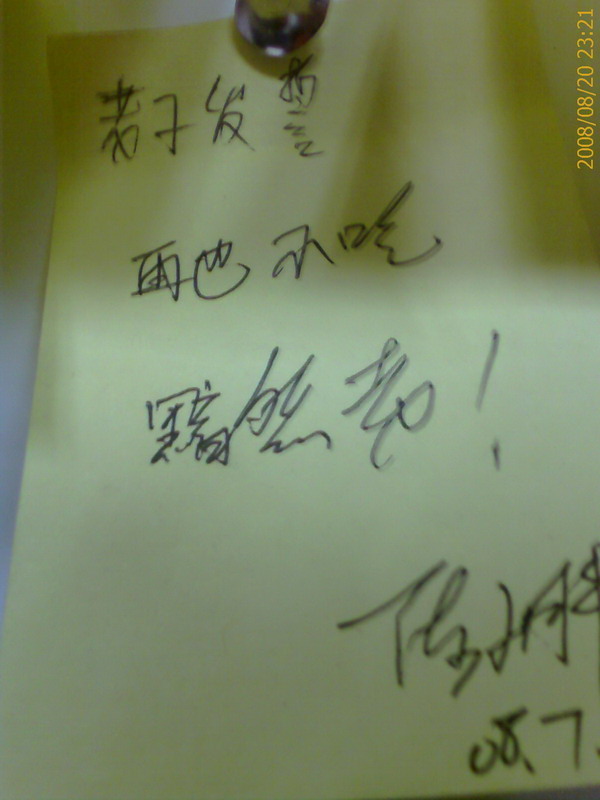 2008/08/20 23:21
老子发誓
再也不吃
黯然!
08.7.